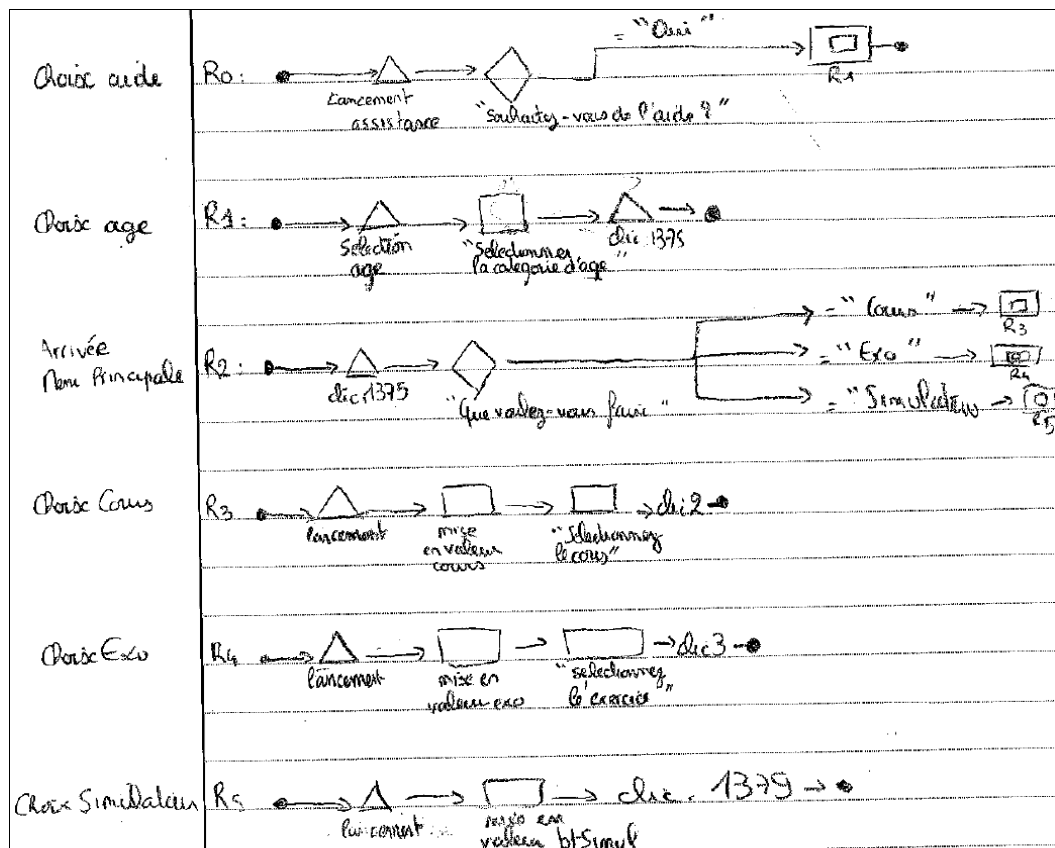 Choix aide
R0:
= "Oui"
R1
Lancement
assistance
"Souhaitez-vous de l'aide ?"
Choix age
R1:
Sélection
age
"Sélectionner
la catégorie d'age"
clic 1375
Arrivée
Menu Principale
R2:
clic 1375
"Que voulez-vous faire"
= "Cours"
R3
= "Exo"
R4
= "Simulation
R5
Choix Cours
R3
lancement
mise
en valeur
cours
"Sélectionnez
le cours"
clic 2
Choix Exo
R4
lancement
mise en
valeur exo
"selectionnez
l'exercice"
clic 3
Choix Simulateur
R5
lancement
mise en
valeur bt-Simul
clic. 1379